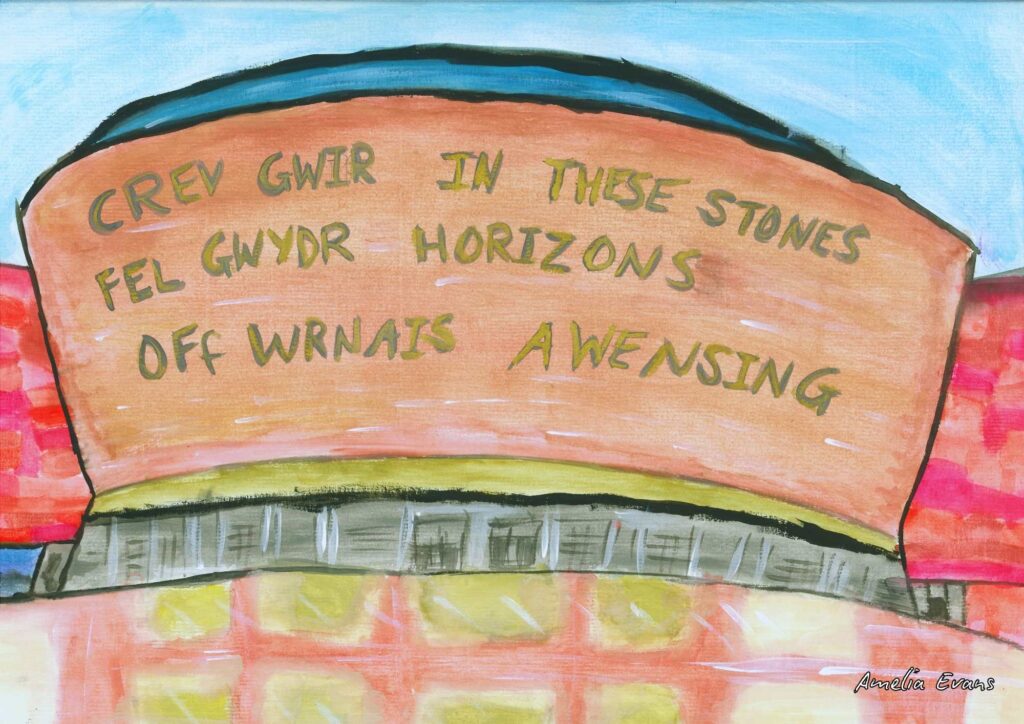 CREV GWIR IN THESE STONES
FEL GWYDR HORIZONS
OFF WRNAIS AWENSING
Amelia Evans